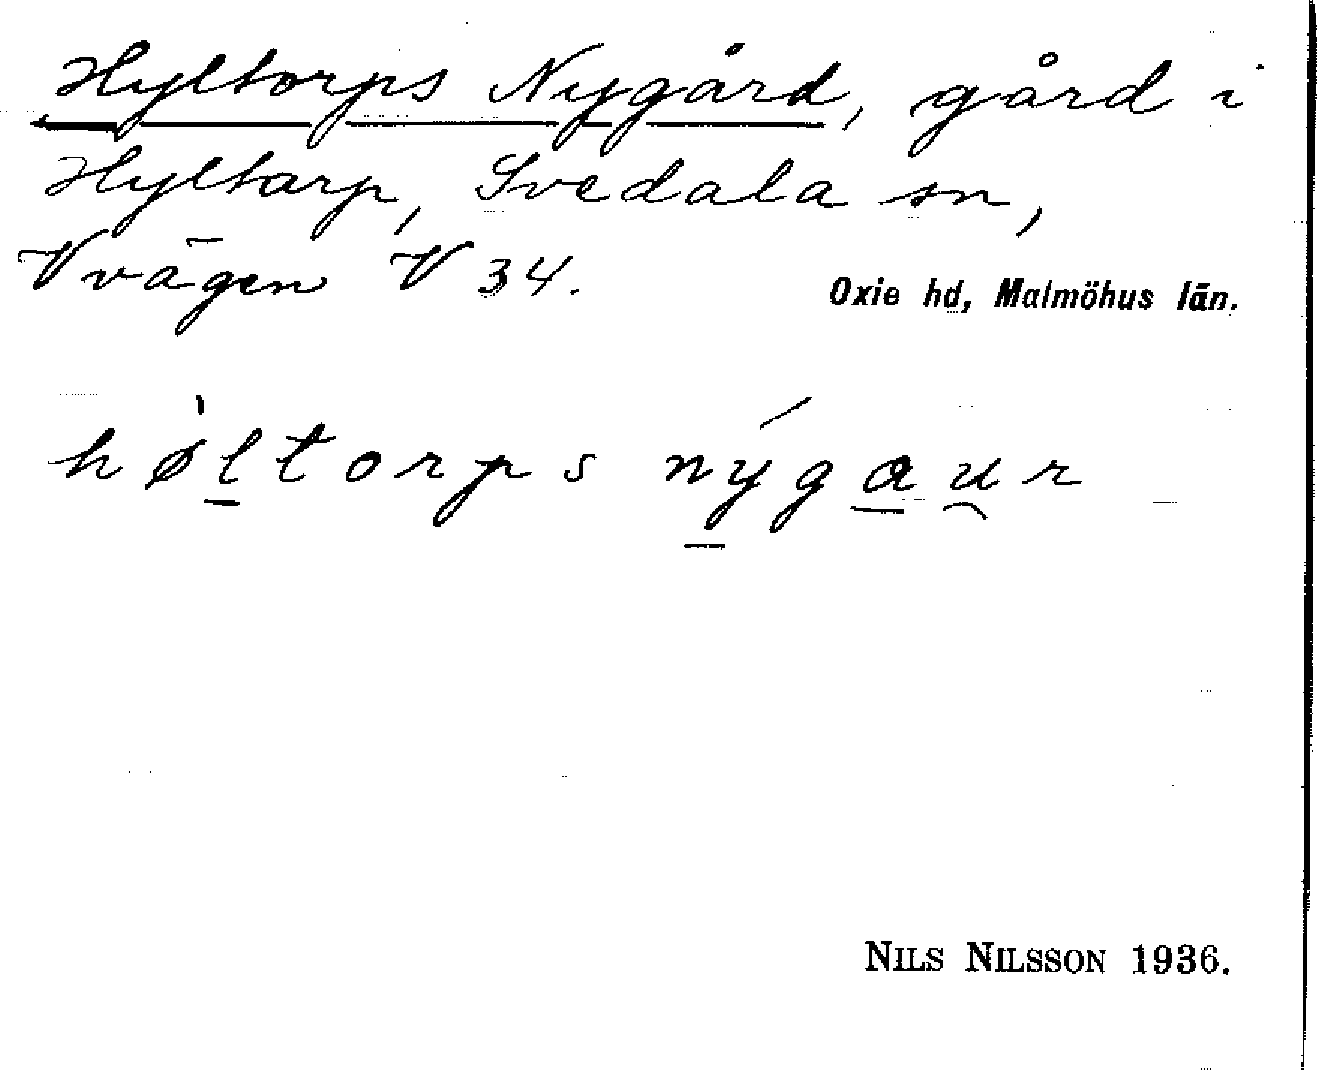 Hyltorps Nygård, gård i
Hyltarp, Svedala sn,
V vägen V 34.
Oxie hd, Malmöhus län.
hø̀ltorps nýgau̯r
NILS NILSSON 1936.